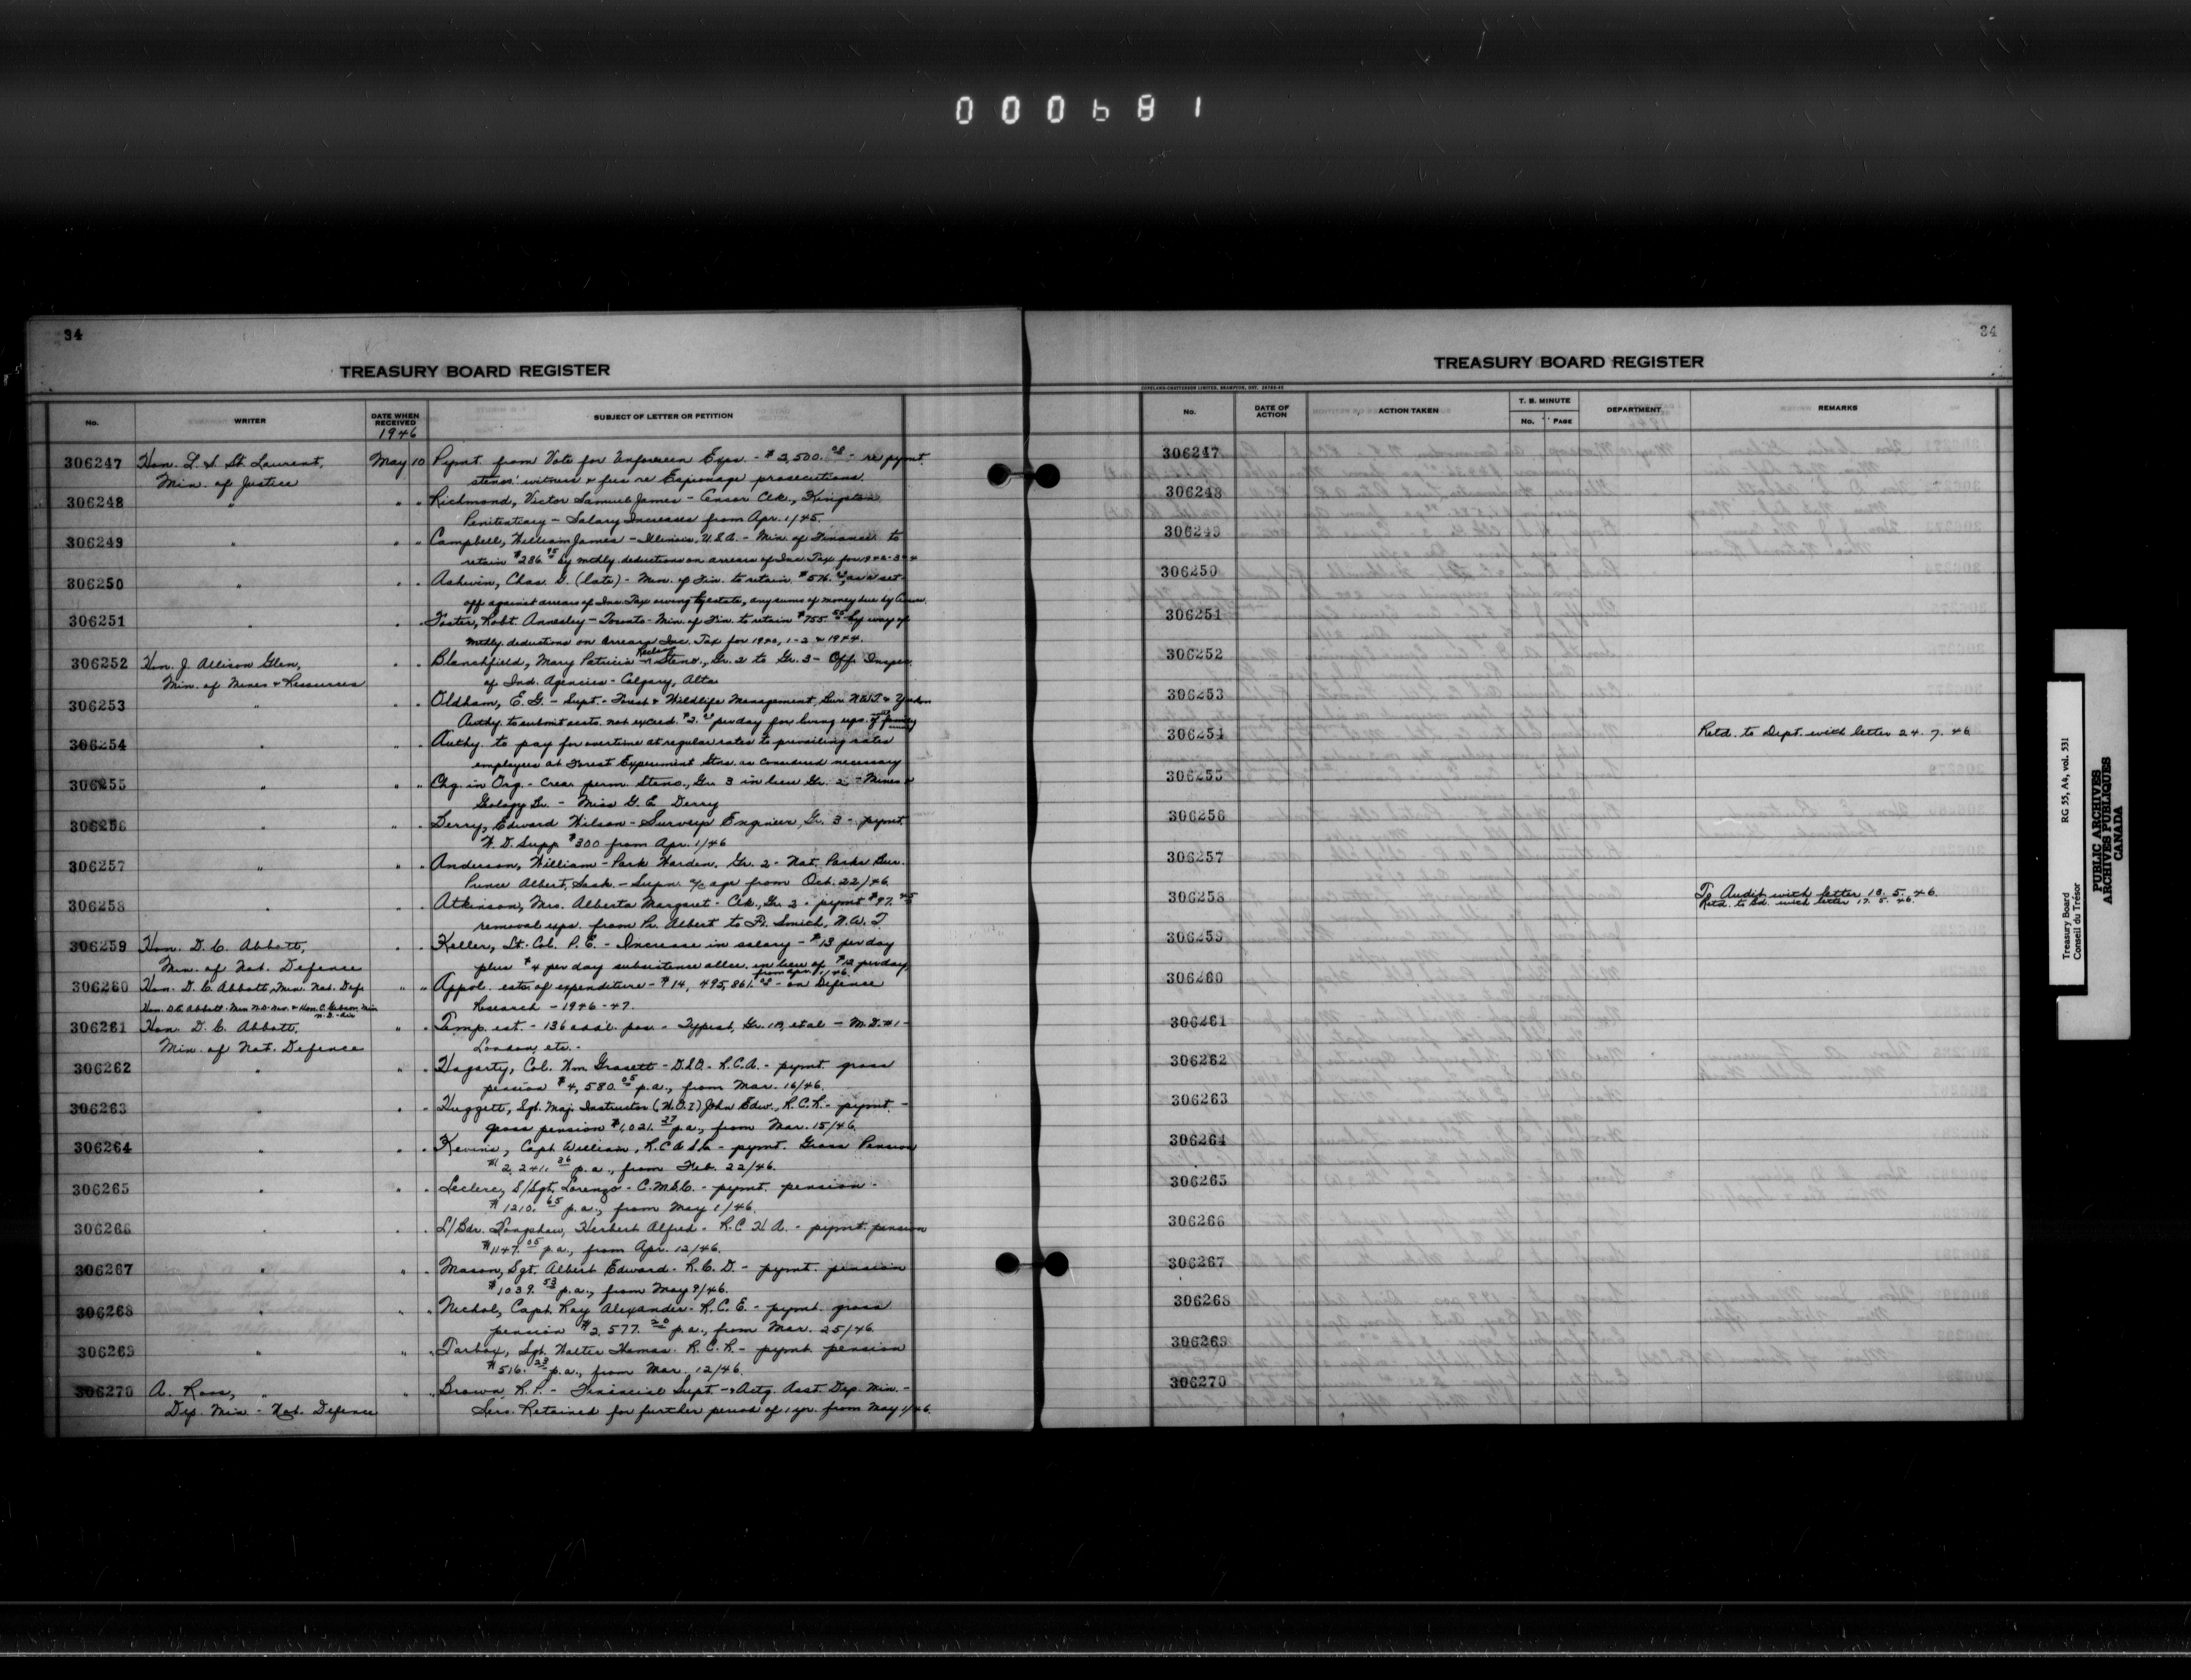 000681
34
TREASURY BOARD REGISTER
No.
WRITER
DATE WHEN RECEIVED
1946
SUBJECT OF LETTER OR PETITION
306247 Hon. L. S. St. Laurent, May 10 Pymt. from Vote for Unforeseen Exps. - $2,500.00 - re pymt.
Min. of Justice stenos. witness & fees re Espionage prosecutions.
306248 " " " Richmond, Victor Samuel James - Censor Clk., Kingston
Penitentiary - Salary Increases from Apr. 1/45.
306249 " " " Campbell, William James - Illinois, U.S.A. - Min. of Finance to
retain $286.95 by mthly. deductions on arrears of Inc. Tax for
306250 " " " Ashwin, Chas. G. (late) - Min. of Fin. to retain as a set
off against arrears of Inc. Tax owing by estate, any sums of money due by
306251 " " " Foster, Robt. Annesley - Toronto - Min. of Fin. to retain $755.55 by way of
mthly. deductions on arrears Inc. Tax for 1940, 1-2 & 1944.
306252 Hon. J. Allison Glen, " " Blanchfield, Mary Patricia - Reclass. Steno., Gr. 2 to Gr. 3 - Off. Inspec.
Min. of Mines & Resources of Ind. Agencies - Calgary, Alta.
306253 " " " Oldham, E. G. - Supt. - Forest & Wildlife Management, Bur. N.W.T. & Yukon
Authy. to submit accts. not exceed. $3.00 per day for living exps.
306254 " " " Authy. to pay for overtime at regular rates to prevailing rates
employees at Forest Experiment Stns. as considered necessary
306255 " " " Chg. in Org. - Crea. perm. Steno., Gr. 3 in lieu Gr. 2 - Mines &
Geology Br. - Miss G. E. Derry
306256 " " " Berry, Edward Wilson - Surveys Engineer, Gr. 3 - pymt.
W. D. Supp. $300 from Apr. 1/46
306257 " " " Anderson, William - Park Warden, Gr. 2 - Nat. Parks Bur.
Prince Albert, Sask. - Supn. a/c age from Oct. 22/46.
306258 " " " Atkinson, Mrs. Alberta Margaret - Clk., Gr. 2 - pymt $97.45
removal exps. from Pr. Albert to Ft. Smith, N.W.T.
306259 Hon. D. C. Abbott, " " Keller, Lt. Col. P. E. - Increase in salary - $13 per day
Min. of Nat. Defence plus $4 per day subsistence allce. in lieu of $12 per day,
from Apr. 1/46.
306260 Hon. D. C. Abbott, Min. Nat. Def. " " Appvl. ests. of expenditure - $14,495,861.00 - on Defence
Research - 1946-47.
Hon. D. C. Abbott - Min. N.D. Nav. & Hon. C. Gibson, Min.
N.D. - Air
306261 Hon. D. C. Abbott, " " Temp. est. - 136 addl. pos. - Typist, Gr. 1B, et al - M.D. #1 -
Min. of Nat. Defence London, etc. -
306262 " " " Hagarty, Col. Wm. Grasett - D.S.O. - R.C.A. - pymt. gross
pension $4,580.05 p.a., from Mar. 16/46.
306263 " " " Huggett, Sgt. Maj. Instructor (W.O.I) John Edw., R.C.R. - pymt. -
gross pension $1,021.37 p.a., from Mar. 15/46.
306264 " " " Kevins, Capt. William, R.C.A.S.C. - pymt. Gross Pension
$2,241.36 p.a., from Feb. 22/46.
306265 " " " Leclerc, S/Sgt. Lorenzo - C.M.S.C. - pymt. pension -
$1210.65 p.a., from May 1/46.
306266 " " " L/Bdr. Longshaw, Herbert Alfred - R.C.H.A. - pymt. pension
$1147.05 p.a., from Apr. 12/46.
306267 " " " Mason, Sgt. Albert Edward - R.C.D. - pymt. pension
$1039.53 p.a., from May 9/46.
306268 " " " Nichol, Capt. Roy Alexander - R.C.E. - pymt. gross
pension $2,577.20 p.a., from Mar. 25/46.
306269 " " " Tarbox, Sgt. Walter Thomas - R.C.R. - pymt. pension
$516.23 p.a., from Mar. 12/46.
306270 A. Ross, " " " Brown, R. P. - Financial Supt. - & Actg. Asst. Dep. Min. -
Dep. Min. - Nat. Defence Serv. Retained for further period of 1 yr. from May 1/46.
34
TREASURY BOARD REGISTER
COPELAND-CHATTERSON LIMITED, BRAMPTON, ONT.
No.
DATE OF ACTION
ACTION TAKEN
T. B. MINUTE
No. PAGE
DEPARTMENT
REMARKS
306247
306248
306249
306250
306251
306252
306253
306254 Retd. to Dept. with letter 24.7.46
306255
306256
306257
306258 To Audit with letter 10.5.46.
Retd. to Bd. with letter 17.5.46.
306259
306260
306261
306262
306263
306264
306265
306266
306267
306268
306269
306270
Treasury Board RG 55, A4, vol. 531
Conseil du Trésor
PUBLIC ARCHIVES
ARCHIVES PUBLIQUES
CANADA